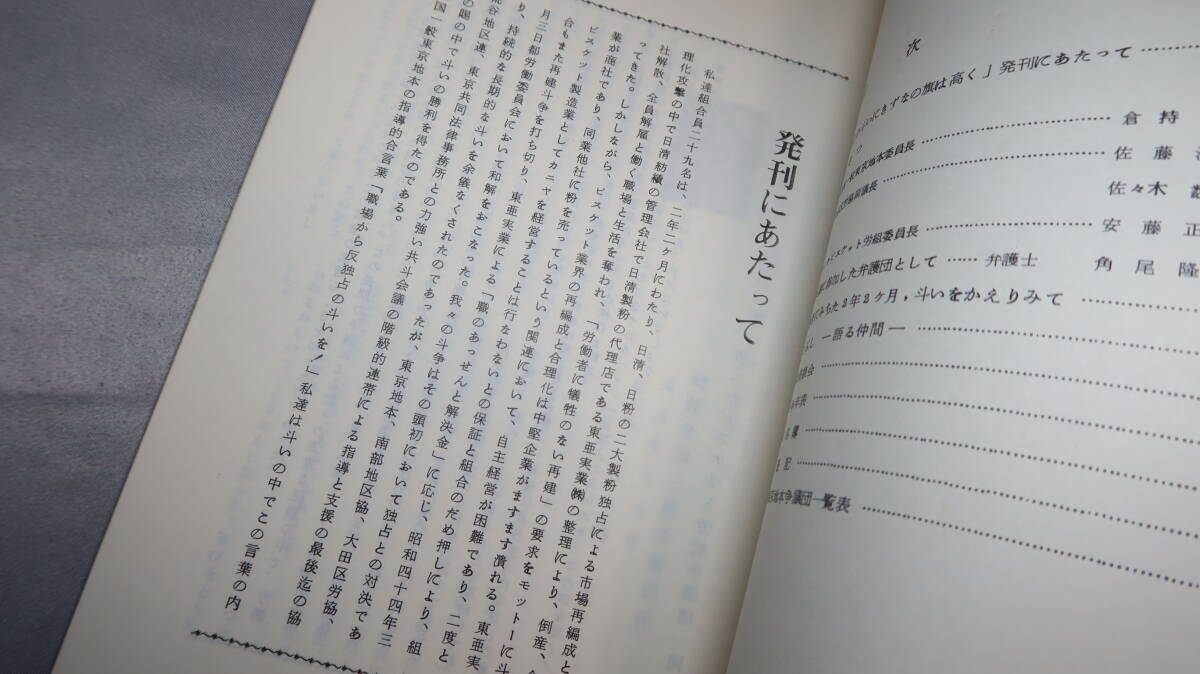 発刊にあたって
私達組合員二十九名は、二年二ケ月にわたり、日清、日粉の二大製粉独占による市場再編成と
理化攻撃の中で日清紡績の管理会社で日清製粉の代理店である東亜実業㈱の整理により、倒産、
社解散、全員解雇と働く職場と生活を奪われ、「労働者に犠牲のない再建」の要求をモットーに斗
ってきた。しかしながら、ビスケット業界の再編成と合理化は中堅企業がますます潰れる。東亜実
業が商社であり、同業他社に粉を売っているという関連において、自主経営が困難であり、二度と
ビスケット製造業としてカニヤを経営することは行なわないとの保証と組合のだめ押しにより、組
合もまた再建斗争を打ち切り、東亜実業による「職のあっせんと解決金」に応じ、昭和四十四年三
月三日都労働委員会において和解をおこなった。我々の斗争はその頭初において独占との対決であ
り、持続的な長期的な斗いを余儀なくされたのであったが、東京地本、南部地区協、大田区労協、
糀谷地区連、東京共同法律事務所との力強い共斗会議の階級的連帯による指導と支援の最後迄の協
の賜の中で斗いの勝利を得たのである。
国一般東京地本の指導的合言葉「職場から反独占の斗いを！」私達は斗いの中でこの言葉の内
次
にきずなの旗は高く」発刊にあたって
倉持
東京地本委員長
佐藤
副議長
佐々木
ビスケット労組委員長
安藤正
参加した弁護団として …… 弁護士 角尾隆
にみちた2年2ケ月，斗いをかえりみて
―語る仲間―
年表
記
地本争議団一覧表